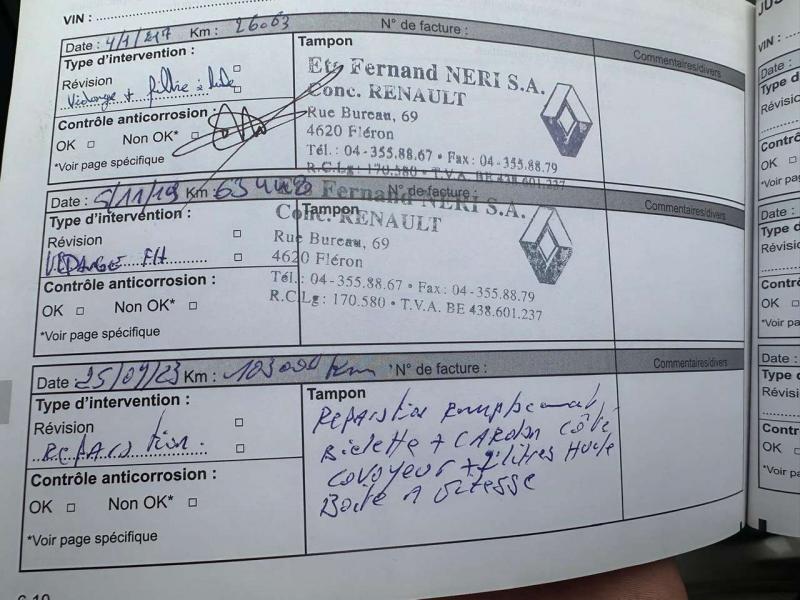 VIN :
Date : 4/1/217 Km : 26.063 N° de facture :
Type d'intervention :
Révision
Vidange + filtre à huile
Contrôle anticorrosion :
OK Non OK*
*Voir page spécifique
Tampon
Ets Fernand NERI S.A.
Conc. RENAULT
Rue Bureau, 69
4620 Fléron
Tél. : 04-355.88.67 • Fax : 04-355.88.79
R.C.Lg : 170.580 • T.V.A. BE 438.601.237
Commentaires/divers
Date : 5/11/19 Km : N° de facture :
Type d'intervention :
Révision
VIDANGE FH
Contrôle anticorrosion :
OK Non OK*
*Voir page spécifique
Tampon
Fernand NERI S.A.
Conc. RENAULT
Rue Bureau, 69
4620 Fléron
Tél. : 04-355.88.67 • Fax : 04-355.88.79
R.C.Lg : 170.580 • T.V.A. BE 438.601.237
Commentaires/divers
Date 25/07/23 Km : 103000 Km N° de facture :
Type d'intervention :
Révision
REPARATION.
Contrôle anticorrosion :
OK Non OK*
*Voir page spécifique
Tampon
REPARATION Remplacement
Biellette + CARDAN CÔTÉ
COVOYEUR + 2 litres Huile
Boite A VITESSE
Commentaires/divers
6.10
VIN :
Date :
OK